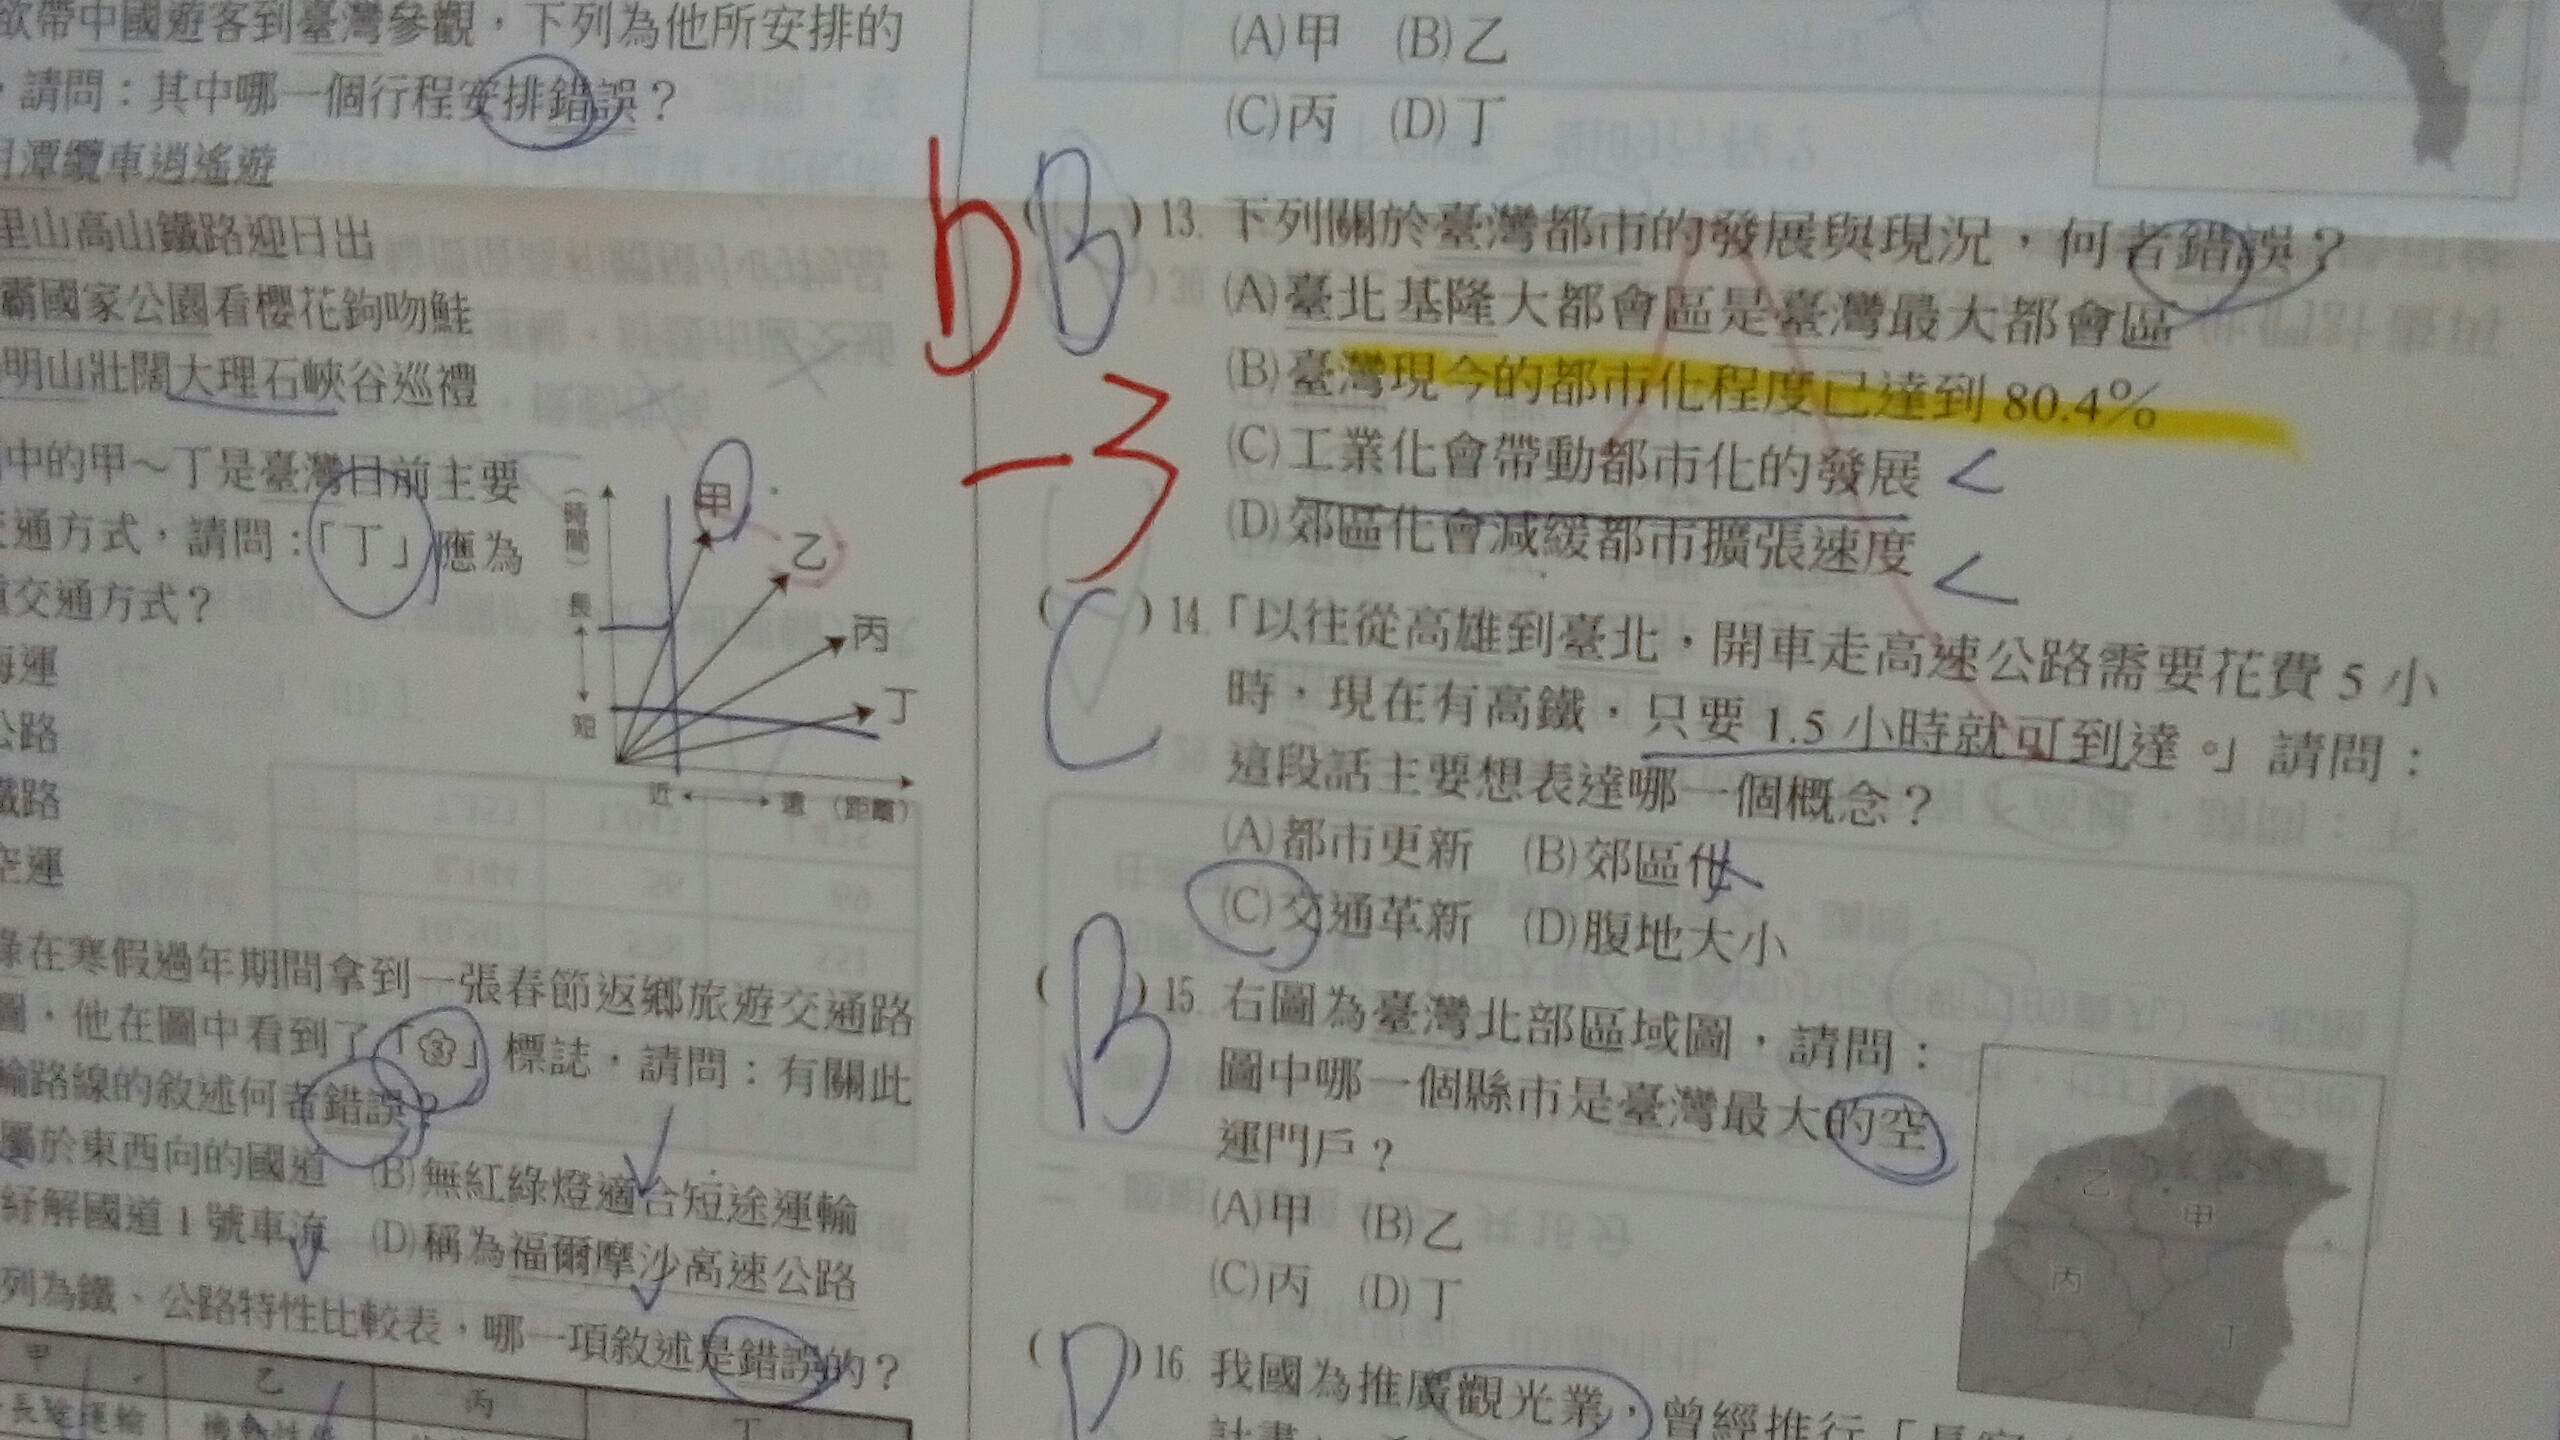 欲帶中國遊客到臺灣參觀，下列為他所安排的
，請問：其中哪一個行程安排錯誤？
月潭纜車逍遙遊
里山高山鐵路迎日出
霸國家公園看櫻花鉤吻鮭
明山壯闊大理石峽谷巡禮
中的甲～丁是臺灣目前主要
交通方式，請問：「丁」應為
交通方式？
海運
公路
鐵路
空運
（時間）
長
短
甲
乙
丙
丁
近
遠
（距離）
在寒假過年期間拿到一張春節返鄉旅遊交通路
圖，他在圖中看到了「3」標誌，請問：有關此
輸路線的敘述何者錯誤？
屬於東西向的國道 (B)無紅綠燈適合短途運輸
紓解國道1號車流 (D)稱為福爾摩沙高速公路
列為鐵、公路特性比較表，哪一項敘述是錯誤的？
甲 乙 丙 丁
長途運輸
(A)甲 (B)乙
(C)丙 (D)丁
b
-3
(B)13. 下列關於臺灣都市的發展與現況，何者錯誤？
(A)臺北基隆大都會區是臺灣最大都會區
(B)臺灣現今的都市化程度已達到80.4%
(C)工業化會帶動都市化的發展
(D)郊區化會減緩都市擴張速度
(C)14.「以往從高雄到臺北，開車走高速公路需要花費5小
時，現在有高鐵，只要1.5小時就可到達。」請問：
這段話主要想表達哪一個概念？
(A)都市更新 (B)郊區化
(C)交通革新 (D)腹地大小
(B)15. 右圖為臺灣北部區域圖，請問：
圖中哪一個縣市是臺灣最大的空
運門戶？
(A)甲 (B)乙
(C)丙 (D)丁
乙
甲
丙
丁
(D)16. 我國為推廣觀光業，曾經推行「